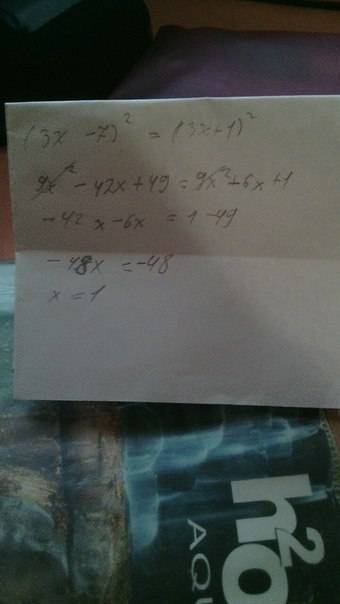 (3x - 7)² = (3x+1)²
9x² - 42x + 49 = 9x² + 6x + 1
- 42x - 6x = 1 - 49
- 48x = -48
x = 1
h2o
AQU